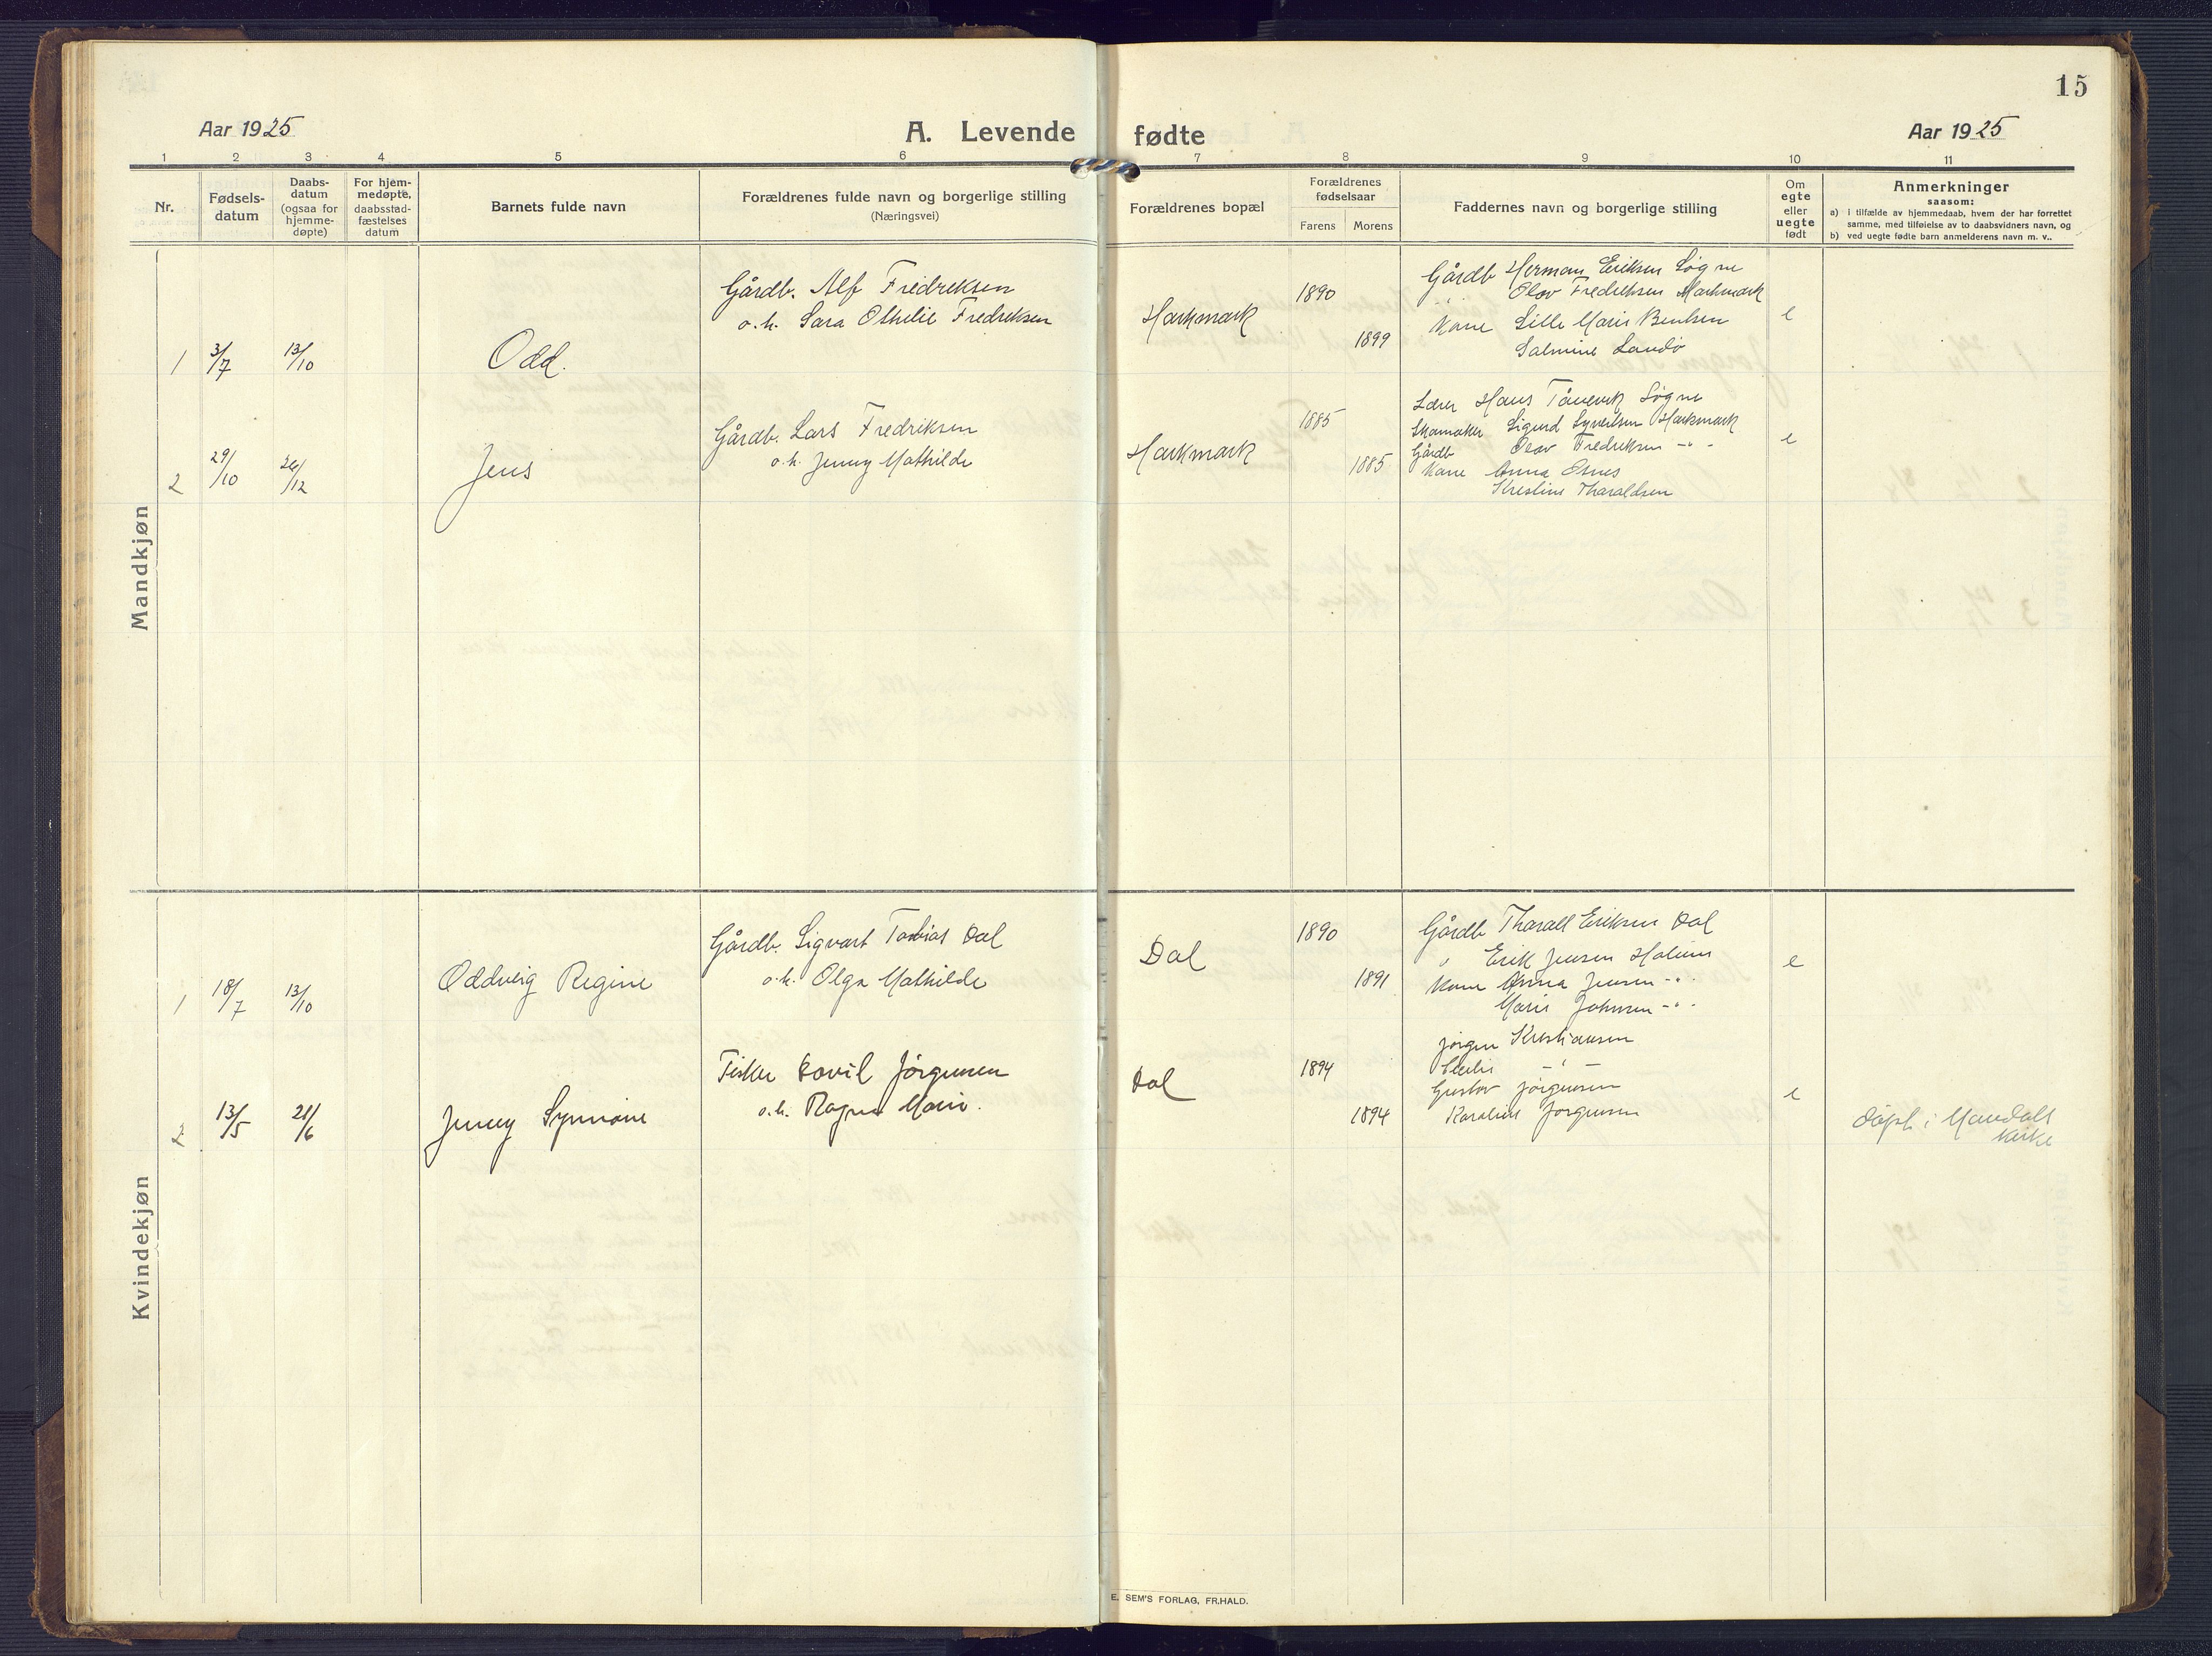 15
Aar 1925
A. Levende fødte
Aar 1925
1 2 3 4 5 6 7 8 9 10 11
Nr.
Fødsels-
datum
Daabs-
datum
(ogsaa for
hjemme-
døpte)
For hjem-
medøpte,
daabsstad-
fæstelses
datum
Barnets fulde navn
Forældrenes fulde navn og borgerlige stilling
(Næringsvei)
Forældrenes bopæl
Forældrenes
fødselsaar
Farens Morens
Faddernes navn og borgerlige stilling
Om
egte
eller
uegte
født
Anmerkninger
saasom:
a) I tilfælde av hjemmedaab, hvem der har forrettet
samme, med tilføielse av to daabsvidners navn, og
b) ved uegte fødte barn anmelderens navn m. v..
Mandkjøn
1 3/7 13/10 Odd.
Gårdb. Alf Fredreksen
o.h. Sara Othilie Fredreksen
Harkmark
1890
1899
Gårdb Herman Eriksen Søgne
" Olav Fredreksen Harkmark
Kone Lille Marie Bentsen
Salmine Landø
e
2 29/10 26/12 Jens
Gårdb. Lars Fredriksen
o.h. Jenny Mathilde
Harkmark
1885
1885
Lærer Hans Tånevik Søgne
Skomaker Sigurd Syvertsen Harkmark
Gårdb Olav Fredreksen -"-
Kone Anna Osnes
Kirstine Tharaldsen
e
Kvindekjøn
1 18/7 13/10 Oddveig Regine
Gårdb. Sigvart Tobias Dal
o.h. Olga Mathilde
Dal
1890
1891
Gårdb Tharall Eriksen Dal
" Erik Jensen
Kone Anna Jensen -"-
Marie Johnsen -"-
e
2 13/5 21/6 Jenny Synnøve
Fisker Tovil Jørgensen
o.h. Ragna Marie.
Dal
1894
1894
Jørgen Kristiansen
-"-
Gustav Jørgensen
Karoline Jørgensen
e
døpt i Mandals
kirke
E. SEM'S FORLAG, FR.HALD.